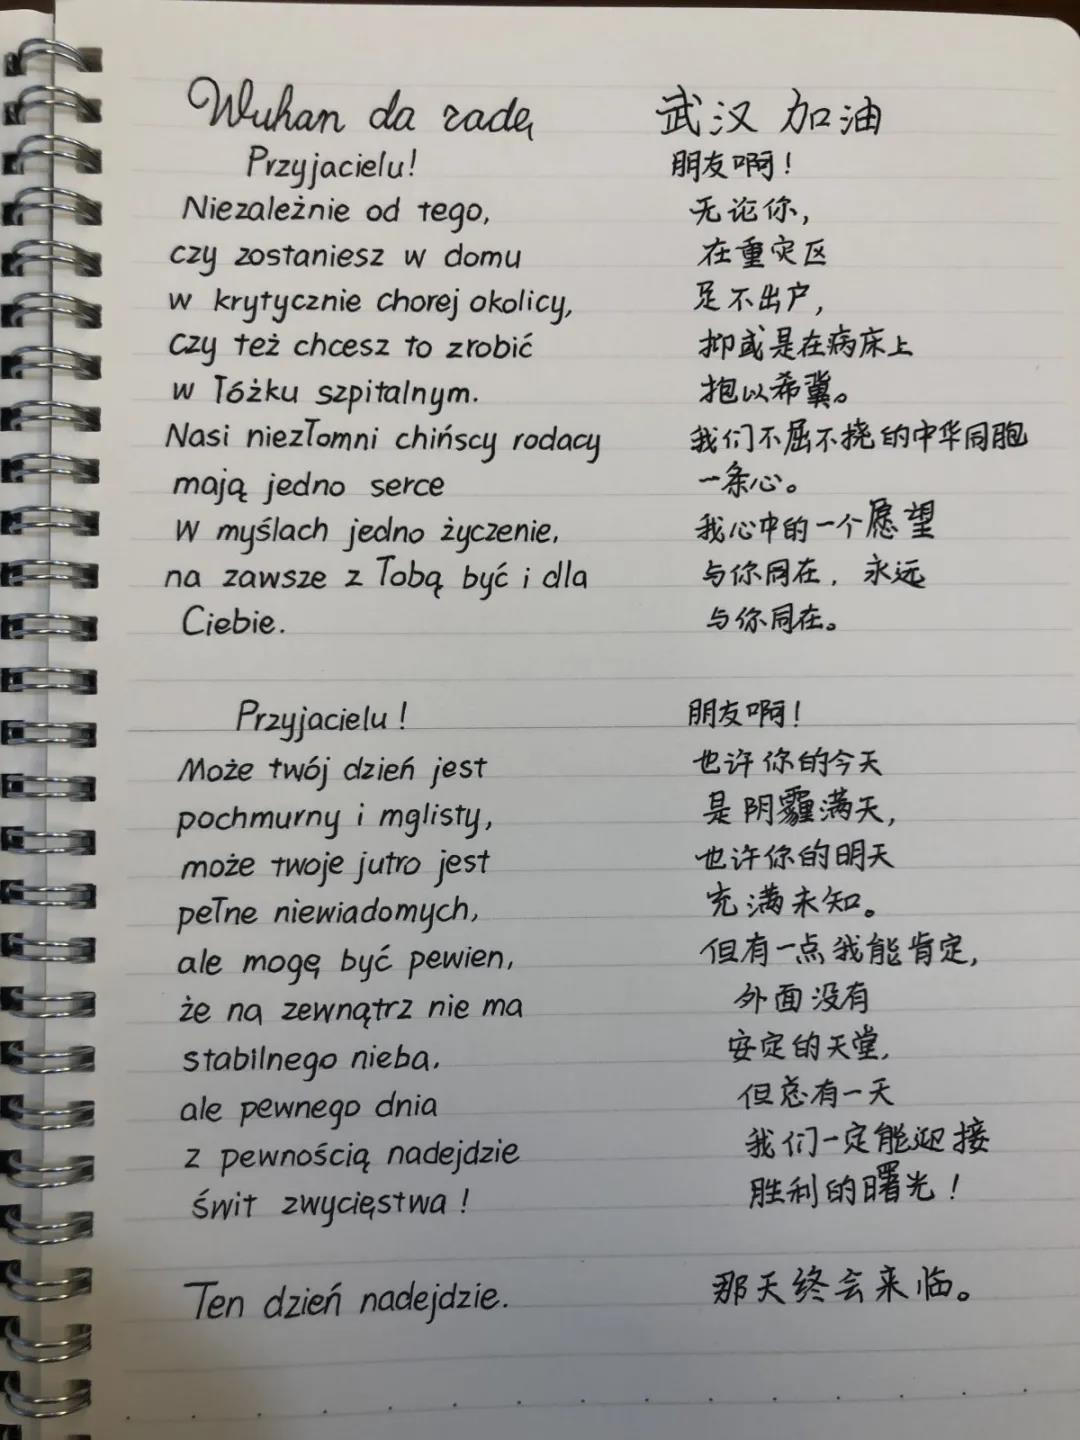 Wuhan da radę
Przyjacielu!
Niezależnie od tego,
czy zostaniesz w domu
w krytycznie chorej okolicy,
czy też chcesz to zrobić
w łóżku szpitalnym.
Nasi niezłomni chińscy rodacy
mają jedno serce
W myślach jedno życzenie,
na zawsze z Tobą być i dla
Ciebie.
Przyjacielu!
Może twój dzień jest
pochmurny i mglisty,
może twoje jutro jest
pełne niewiadomych,
ale mogę być pewien,
że na zewnątrz nie ma
stabilnego nieba,
ale pewnego dnia
z pewnością nadejdzie
świt zwycięstwa!
Ten dzień nadejdzie.
武汉 加油
朋友啊!
无论你,
在重灾区
足不出户,
抑或是在病床上
抱以希冀。
我们不屈不挠的中华同胞
一条心。
我心中的一个愿望
与你同在,永远
与你同在。
朋友啊!
也许你的今天
是阴霾满天,
也许你的明天
充满未知。
但有一点我能肯定,
外面没有
安定的天堂,
但总有一天
我们一定能迎接
胜利的曙光!
那天终会来临。